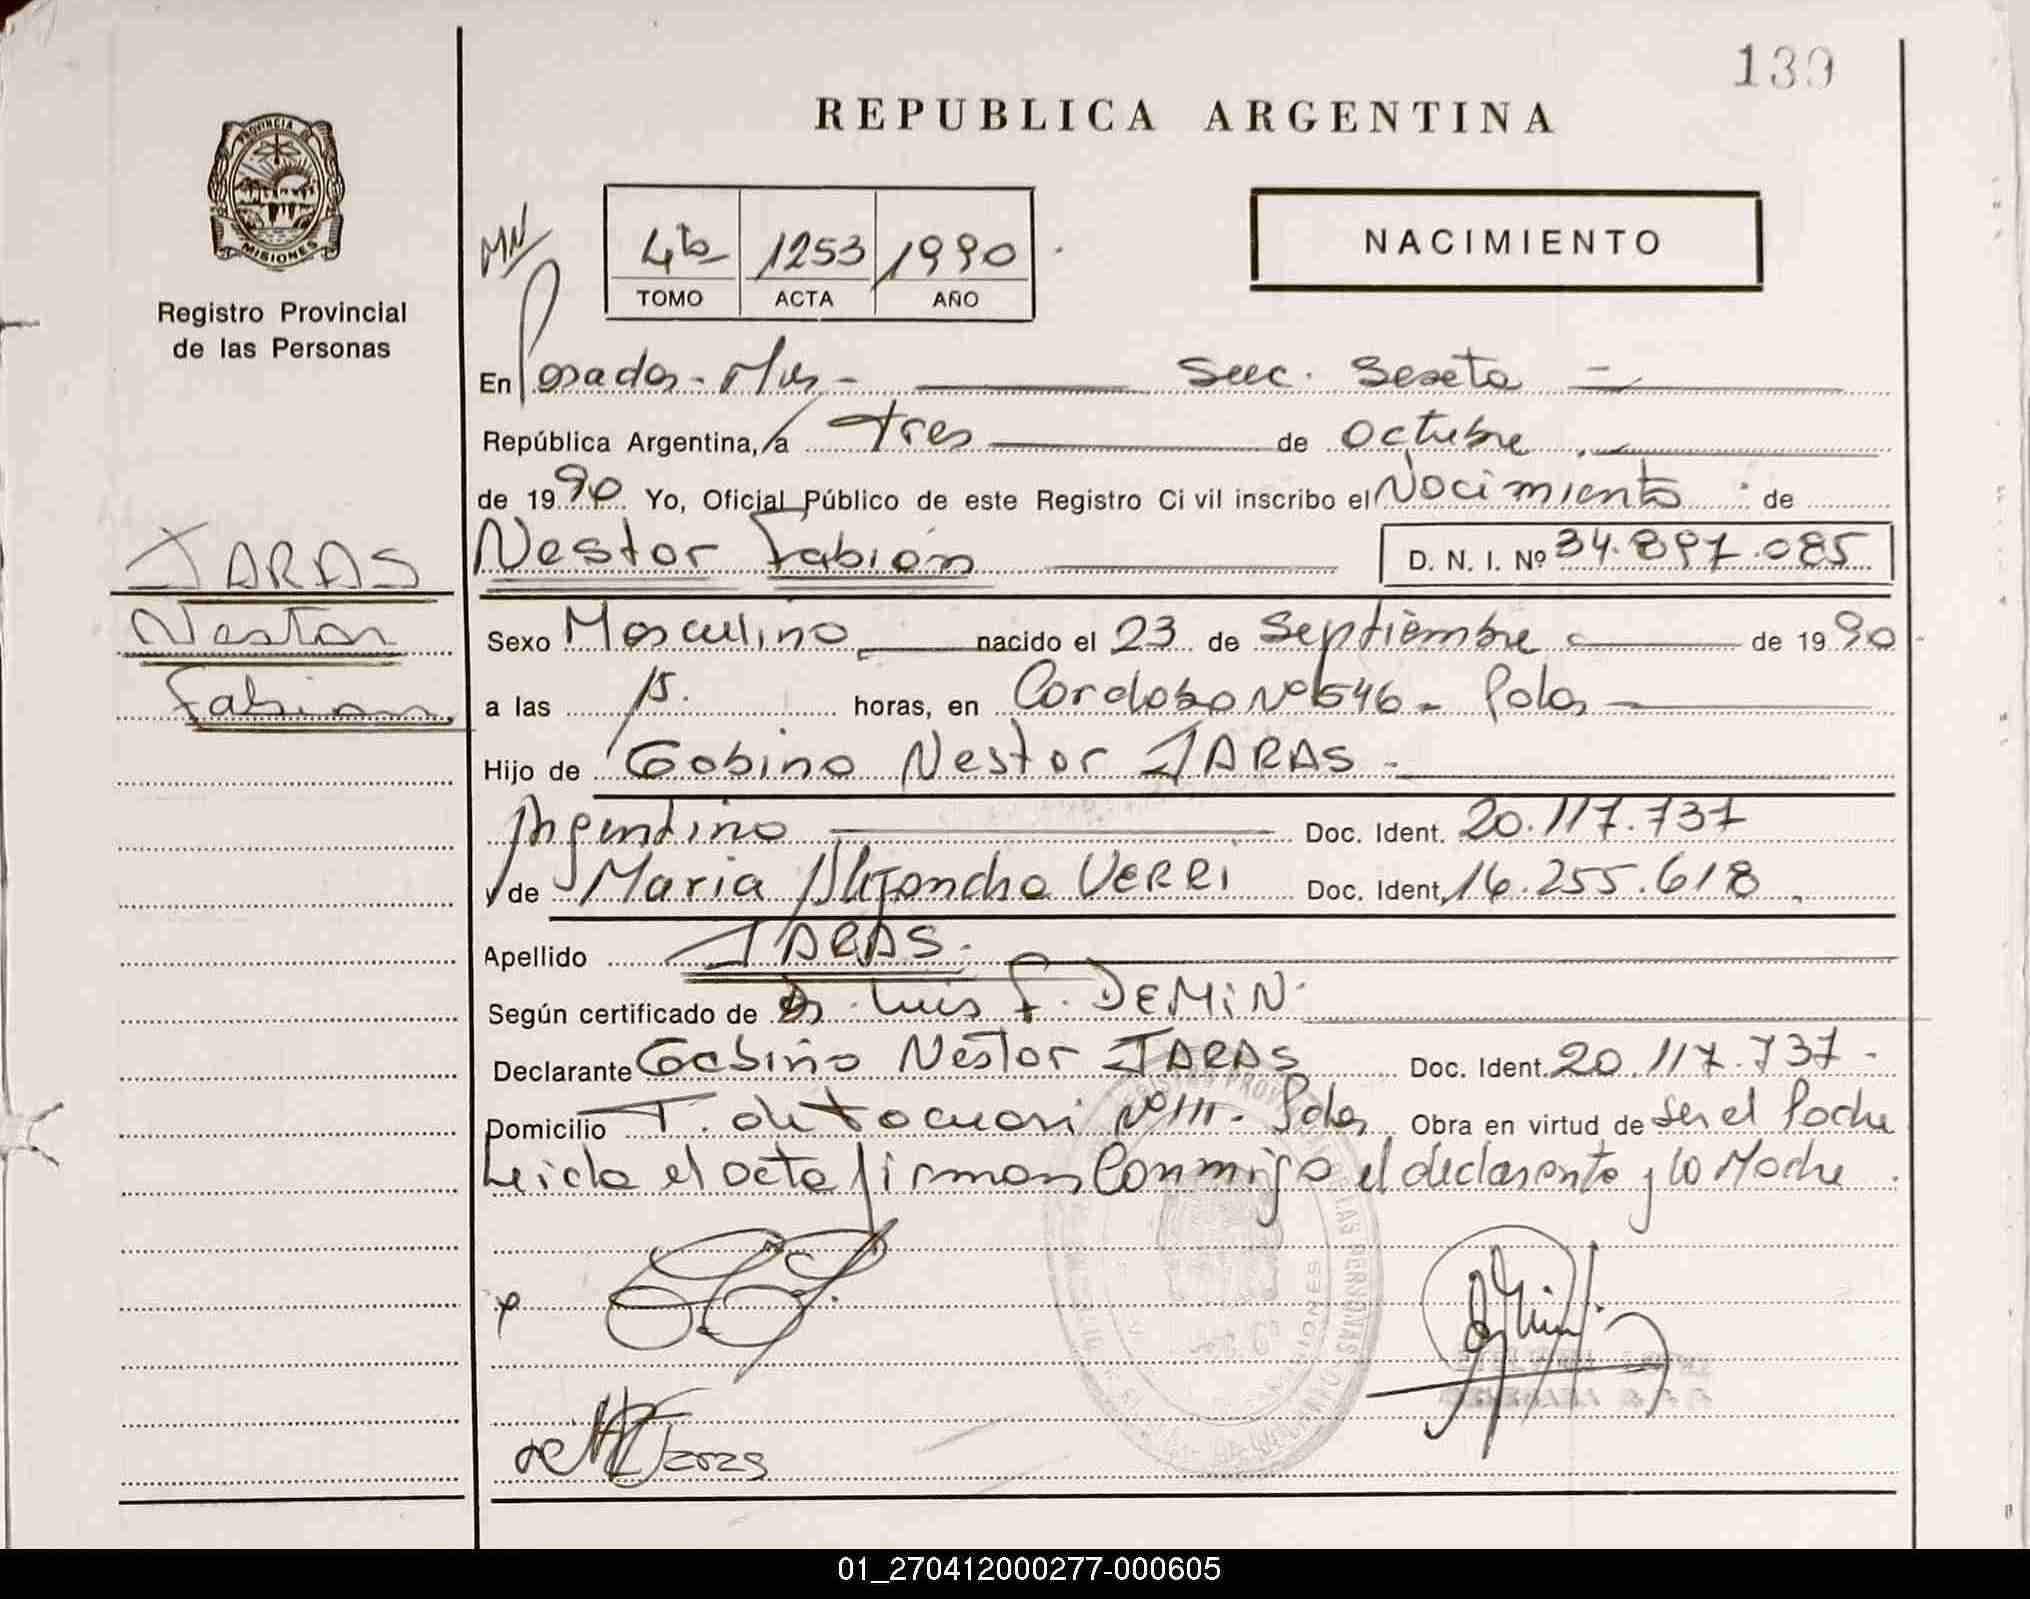 139
REPUBLICA ARGENTINA
PROVINCIA
MISIONES
Registro Provincial
de las Personas
4to 1253 1990
TOMO ACTA AÑO
NACIMIENTO
En Posadas - Mnes - Secc. Sexta -
República Argentina, a tres de Octubre
de 1990 Yo, Oficial Público de este Registro Ci vil inscribo el Nacimiento de
JARAS
Nestor
Fabian
Nestor Fabián D. N. I. Nº 34.897.085
Sexo Masculino nacido el 23 de Septiembre de 1990
a las 15. horas, en Cordoba Nº 546 - Pdas
Hijo de Gabino Nestor JARAS -
Argentino Doc. Ident. 20.117.737
y de Maria VERRI Doc. Ident. 16.255.618
Apellido JARAS.
Según certificado de Dr. Luis F. DEMIN.
Declarante Gabino Nestor JARAS Doc. Ident. 20.117.737 -
Domicilio T. de Nº 111 - Pdas Obra en virtud de ser el Padre
Leida el acta firman conmigo el declarante y la Madre.
Jaras
01_270412000277-000605